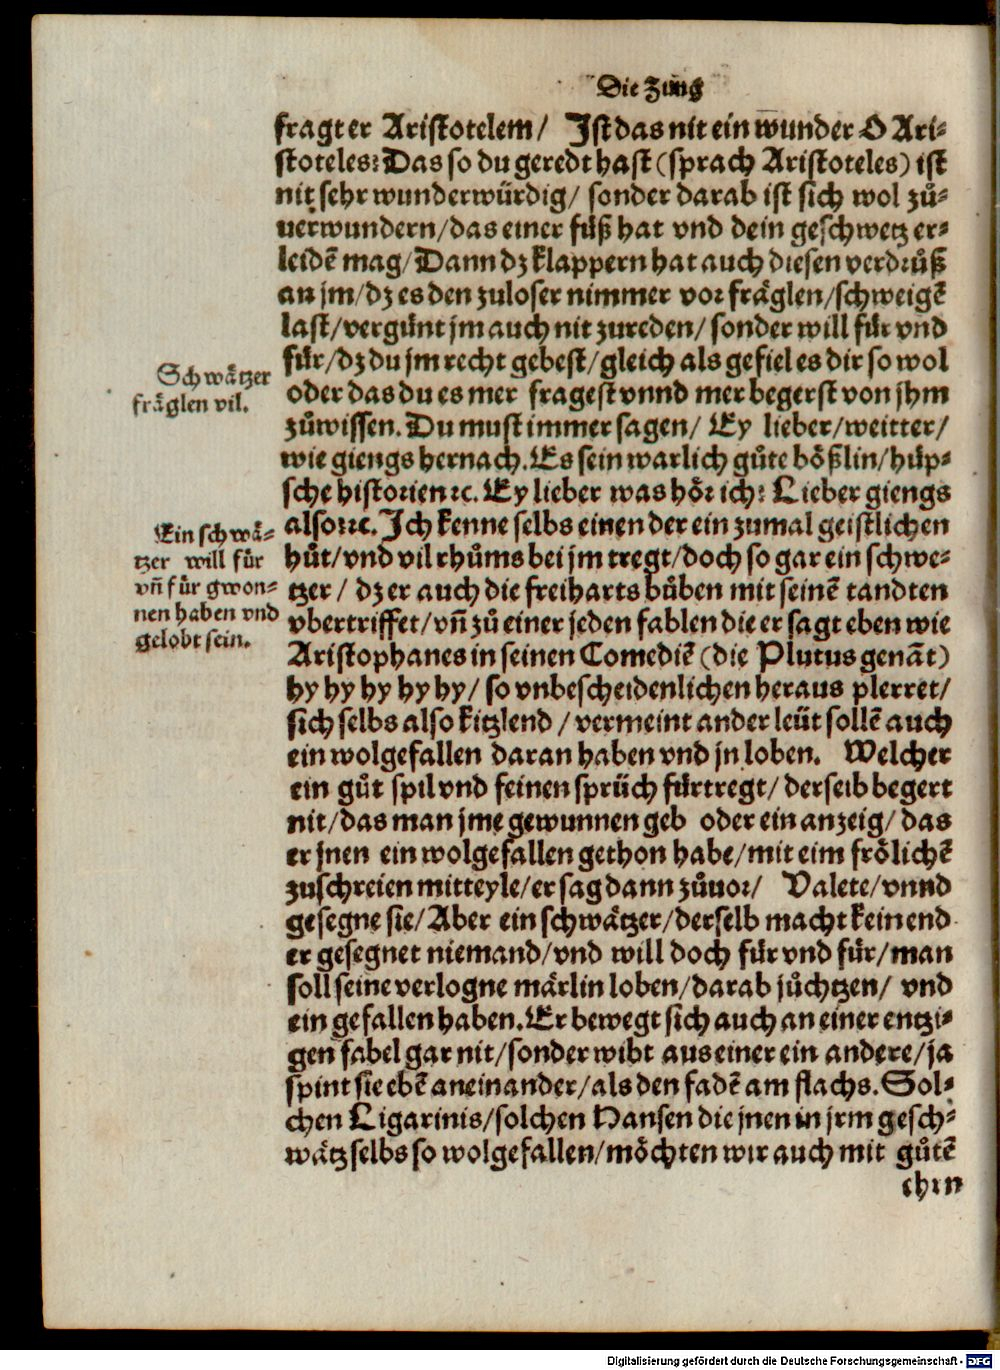 Die Zung
fragt er Aristotelem/ Ist das nit ein wunder O Ari-
stoteles? Das so du geredt hast (sprach Aristoteles) ist
nit sehr wunderwürdig/ sonder darab ist sich wol zů-
uerwundern/ das einer füß hat vnd dein geschwetz er-
leidē mag/ Dann dz klappern hat auch diesen verdruß
an jm/ dz es den zuloser nimmer vor fräglen/ schweigē
last/ vergünt jm auch nit zureden/ sonder will für vnd
für/ dz du jm recht gebest/ gleich als gefiel es dir so wol
oder das du es mer fragest vnnd mer begerst von jhm
zůwissen. Du must immer sagen/ Ey lieber/ weitter/
wie giengs hernach. Es sein warlich gůte bößlin/ hüp-
sche historien ꝛc. Ey lieber was hör ich? Lieber giengs
also ꝛc. Ich kenne selbs einen der ein zumal geistlichen
hůt/ vnd vil rhůms bei jm tregt/ doch so gar ein schwe-
tzer/ dz er auch die freiharts bůben mit seinē tandten
vbertriffet/ vn̄ zů einer jeden fablen die er sagt eben wie
Aristophanes in seinen Comediē (die Plutus genāt)
hy hy hy hy hy/ so vnbescheidenlichen heraus plerret/
sich selbs also kitzlend/ vermeint ander leüt sollē auch
ein wolgefallen daran haben vnd jn loben. Welcher
ein gůt spil vnd feinen sprüch fürtregt/ derselb begert
nit/ das man jme gewunnen geb oder ein anzeig/ das
er jnen ein wolgefallen gethon habe/ mit eim frölichē
zuschreien mitteyle/ er sag dann zůuor/ Valete/ vnnd
gesegne sie/ Aber ein schwätzer/ derselb macht kein end
er gesegnet niemand/ vnd will doch für vnd für/ man
soll seine verlogne märlin loben/ darab jůchtzen/ vnd
ein gefallen haben. Er bewegt sich auch an einer entzi-
gen fabel gar nit/ sonder wibt aus einer ein andere/ ja
spint sie ebē aneinander/ als den fadē am flachs. Sol-
chen Ligarinis/ solchen Hansen die jnen in jrm gesch-
wätz selbs so wolgefallen/ möchten wir auch mit gůtē
ehrn
Schwätzer
fräglen vil.
Ein schwä-
tzer will für
vn̄ für gwon-
nen haben vnd
gelobt sein.
Digitalisierung gefördert durch die Deutsche Forschungsgemeinschaft - DFG